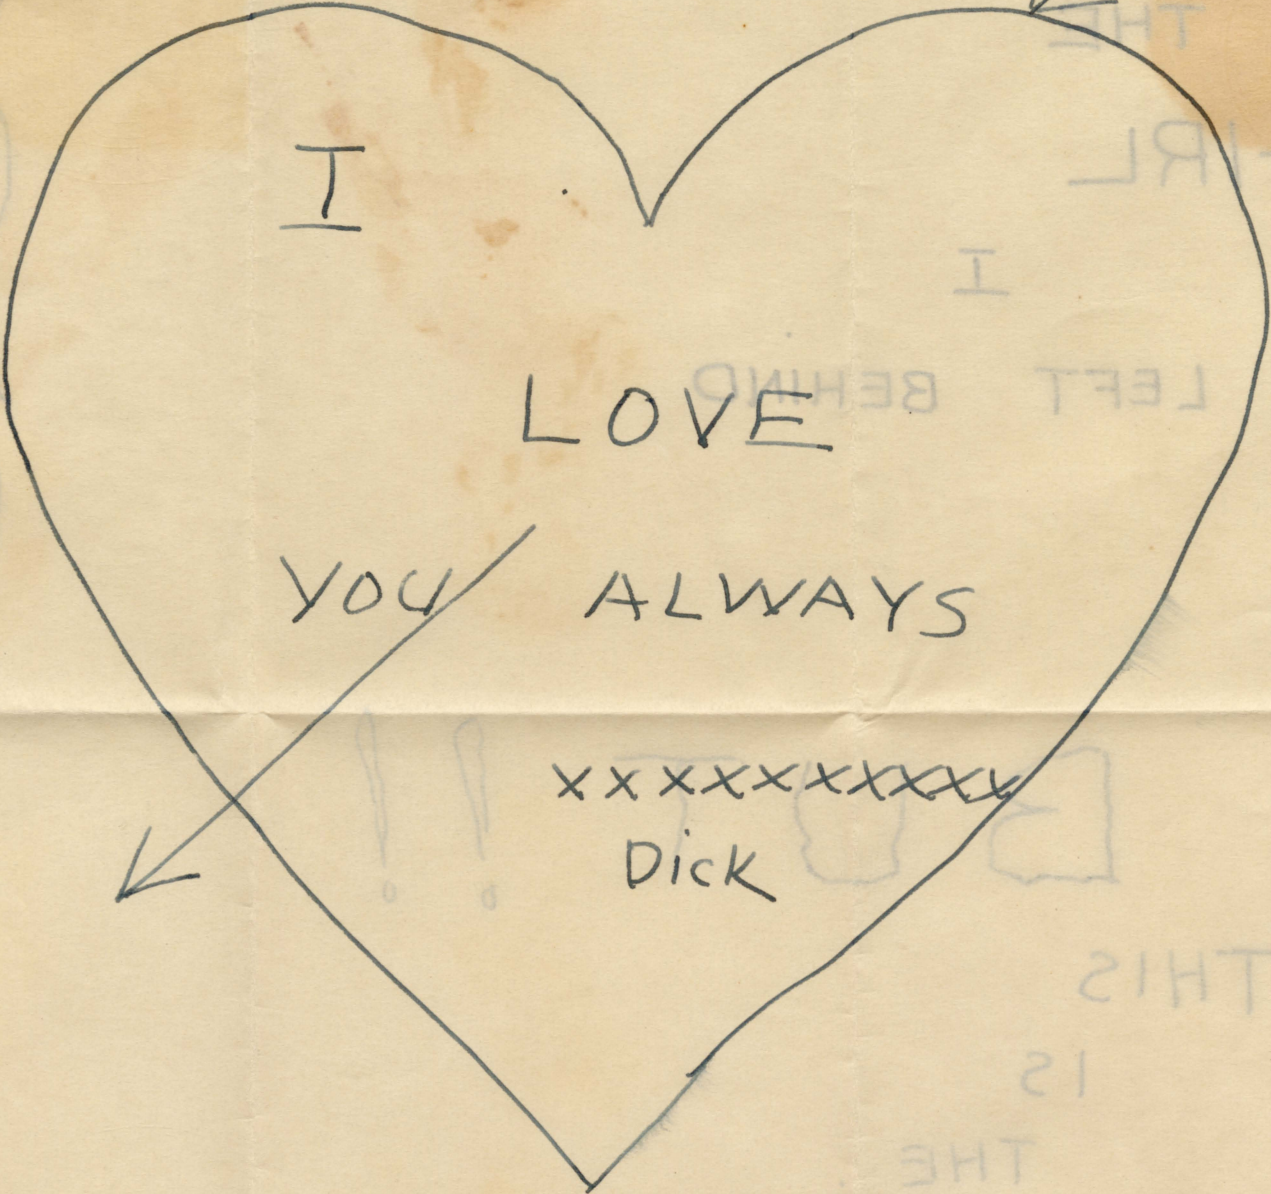 I
LOVE
YOU ALWAYS
xxxxxxxxxx
Dick